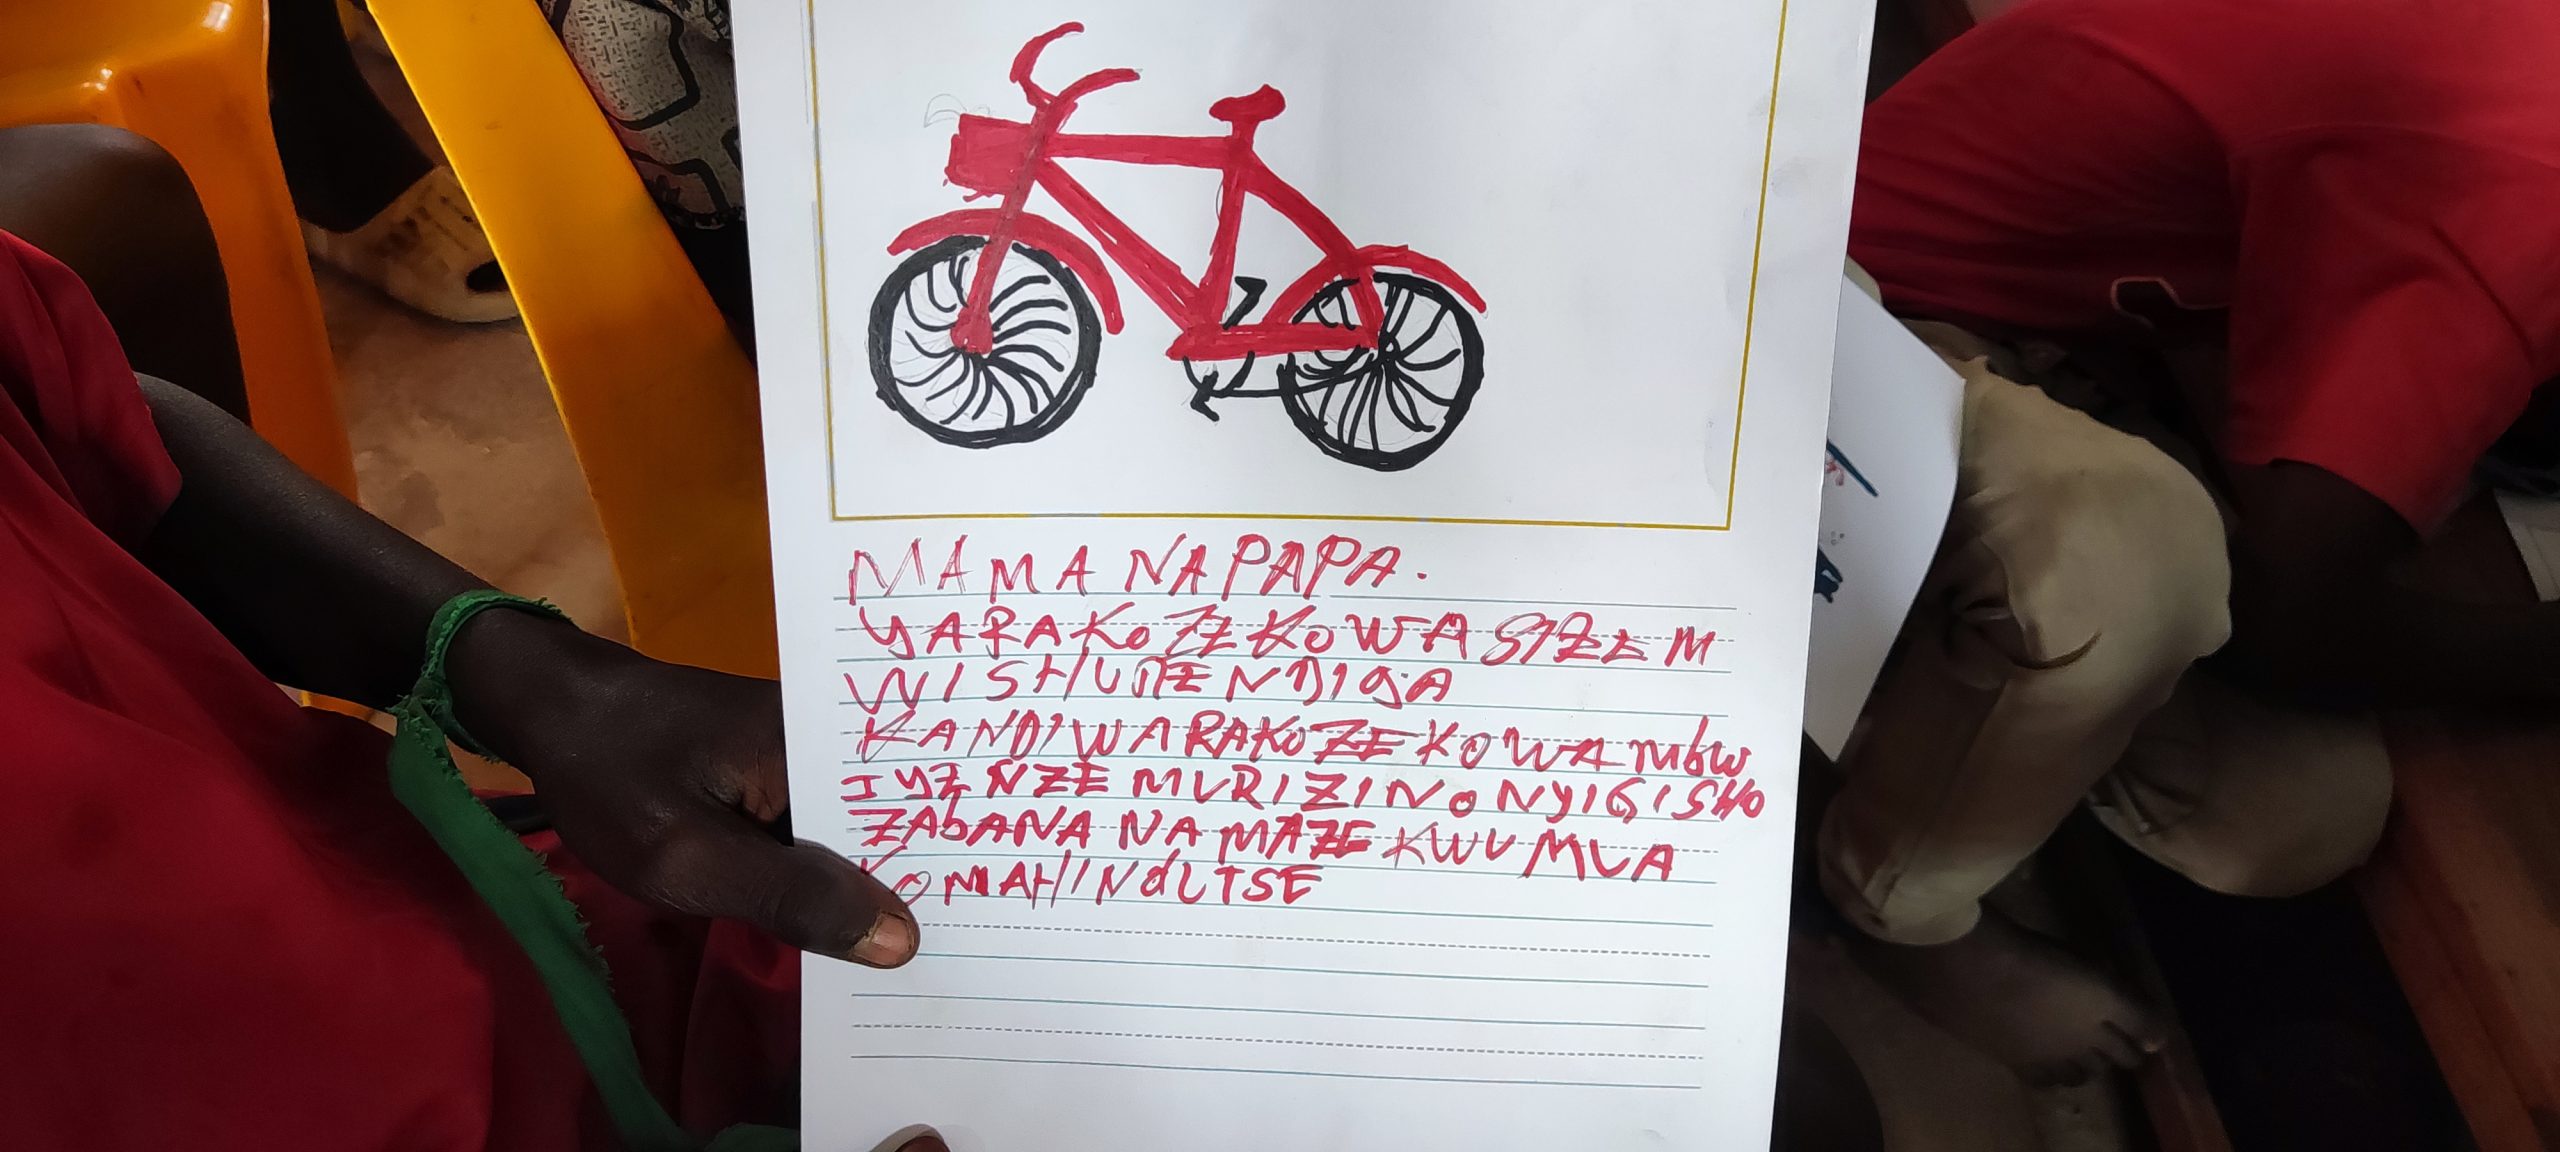 MAMA NA PAPA.
YARAKOZE KOWA SIZE M
WISHURE NDIGA
KANDI WARAKOZE KOWA mbw
IYZ NZE MURI ZINO NYIGISHO
ZAbANA NA MAZE KWUMUA
KO MAHINdUTSE